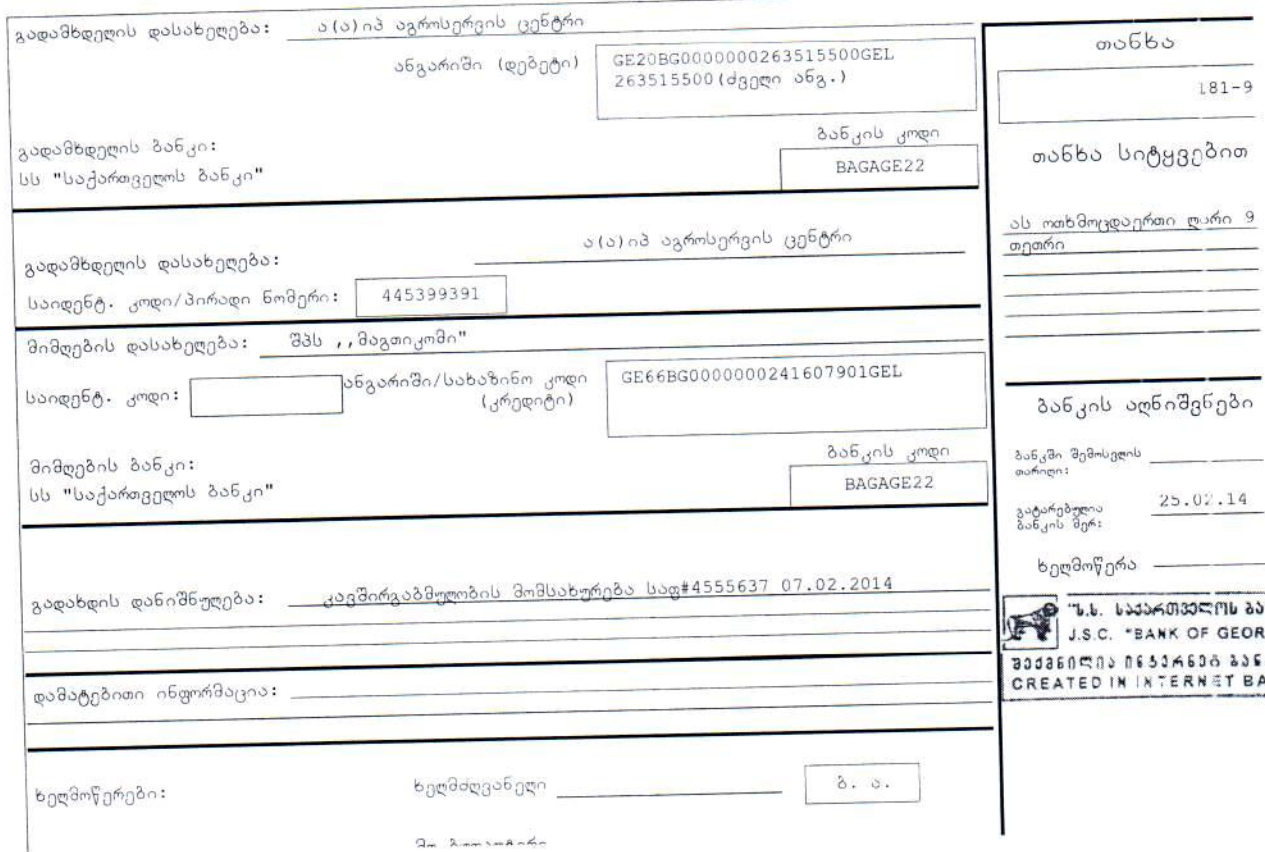 გადამხდელის დასახელება: ა(ა)იპ აგროსერვის ცენტრი
ანგარიში (დებეტი) GE20BG0000000263515500GEL
263515500(ძველი ანგ.)
გადამხდელის ბანკი:
ბანკის კოდი
სს "საქართველოს ბანკი"
BAGAGE22
გადამხდელის დასახელება: ა(ა)იპ აგროსერვის ცენტრი
საიდენტ. კოდი/პირადი ნომერი: 445399391
მიმღების დასახელება: შპს ,,მაგთიკომი"
საიდენტ. კოდი:
ანგარიში/სახაზინო კოდი
(კრედიტი)
GE66BG0000000241607901GEL
მიმღების ბანკი:
ბანკის კოდი
სს "საქართველოს ბანკი"
BAGAGE22
გადახდის დანიშნულება: კავშირგაბმულობის მომსახურება საფ#4555637 07.02.2014
დამატებითი ინფორმაცია:
ხელმოწერები: ხელმძღვანელი ბ. ა.
თანხა
181-9
თანხა სიტყვებით
ას ოთხმოცდაერთი ლარი 9
თეთრი
ბანკის აღნიშვნები
ბანკში შემოსვლის
თარიღი:
გატარებულია
ბანკის მერ:
25.02.14
ხელმოწერა
"ს.ს. საქართველოს ბა
J.S.C. "BANK OF GEOR
შექმნილია ინტერნეტ ბან
CREATED IN INTERNET BA